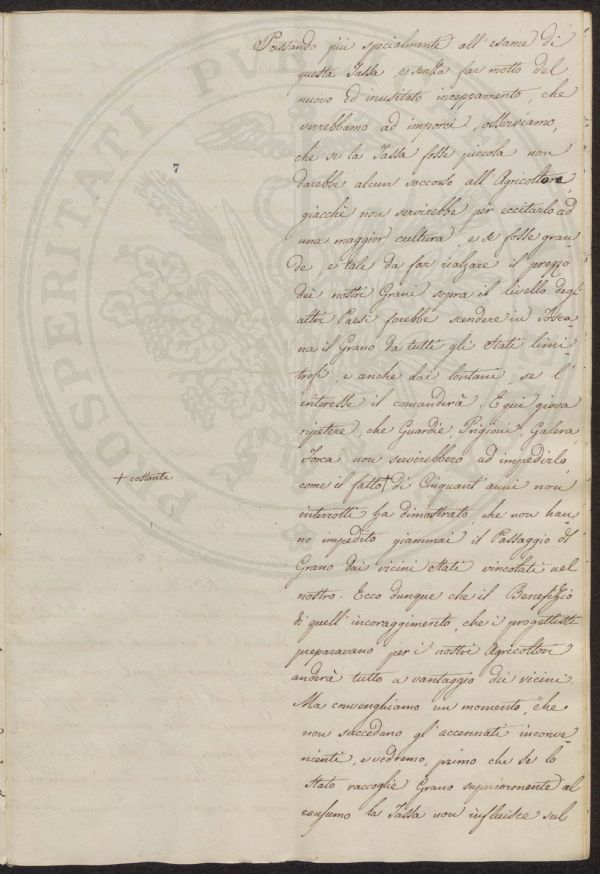 PROSPERITATI PUB
Passando più specialmente all'esame di
questa Tassa, e senza far motto del
nuovo ed inusitato inceppamento, che
verrebbamo ad imporci, osserviamo,
che se la Tassa fosse piccola non
darebbe alcun soccorso all'Agricoltore,
giacchè non servirebbe per eccitarlo ad
una maggior cultura, e se fosse gran
de, e tale da far rialzare il prezzo
dei nostri Grani sopra il livello degl'
altri Paesi farebbe scendere in Tosca-
na il Grano da tutti gli Stati limi-
trofi, e anche dai lontani, se l'
interesse il comanderà. E quì giova
ripetere, che Guardie, Prigioni, Galera,
Forca non servirebbero ad impedirlo,
come il fatto + di Cinquant'anni non
interrotti ha dimostrato, che non han-
no impedito giammai il Passaggio di
Grano dai vicini Stati vincolati nel
nostro. Ecco dunque che il Benefizio
di quell'incoraggimento, che i progettisti
preparavano per i nostri Agricoltori
anderà tutto a vantaggio dei vicini.
Ma convenghiamo un momento, che
non succedano gl'accennati inconve-
nienti, e vedremo, primo che se lo
Stato raccoglie Grano superiormente al
consumo la Tassa non influisce sul
7
+ costante